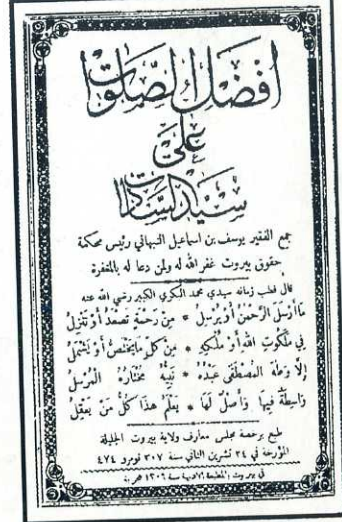 أفضل الصلوات
على
سيد السادات
جمع الفقير يوسف بن اسماعيل النبهاني رئيس محكمة
حقوق بيروت غفر الله له ولمن دعا له بالمغفرة
قال قطب زمانه سيدي محمد البكري الكبير رضي الله عنه
مَا أَرْسَلَ الرَّحْمٰنُ أَوْ يُرْسِلُ * مِنْ رَحْمَةٍ تَصْعَدُ أَوْ تَنْزِلُ
فِي مَلَكُوتِ اللهِ أَوْ مُلْكِهِ * مِنْ كُلِّ مَا يَخْتَصُّ أَوْ يَشْمَلُ
إِلَّا وَطٰهَ الْمُصْطَفَى عَبْدُهُ * نَبِيُّهُ مُخْتَارُهُ الْمُرْسَلُ
وَاسِطَةٌ فِيهَا وَأَصْلٌ لَهَا * يَعْلَمُ هٰذَا كُلُّ مَنْ يَعْقِلُ
طبع برخصة مجلس معارف ولاية بيروت الجليلة
المؤرخة في ٢٤ تشرين الثاني سنة ٣٠٧ نومرو ٤٧٤
في بيروت بالمطبعة الادبية سنة ١٣٠٩ هجرية